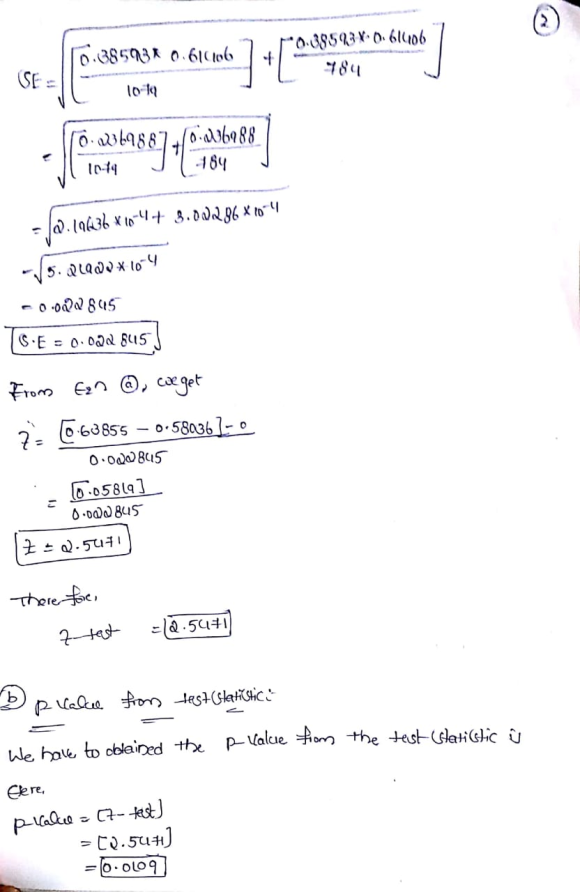 ②
SE = √[0.38593 × 0.61406 / 1079] + [0.38593 × 0.61406 / 784]
= √[0.236988 / 1079] + [0.236988 / 784]
= √2.19636 × 10⁻⁴ + 3.02286 × 10⁻⁴
= √5.21922 × 10⁻⁴
= 0.022845
S.E = 0.022845
From Eqn ⓐ, we get
Z = [0.63855 - 0.58036] - 0 / 0.022845
= [0.05819] / 0.022845
Z = 2.5471
Therefore,
Z-test = 2.5471
ⓑ p value from test statistic:
We have to obtained the p value from the test statistic is
Here,
p-value = [Z-test]
= [2.5471]
= 0.0109